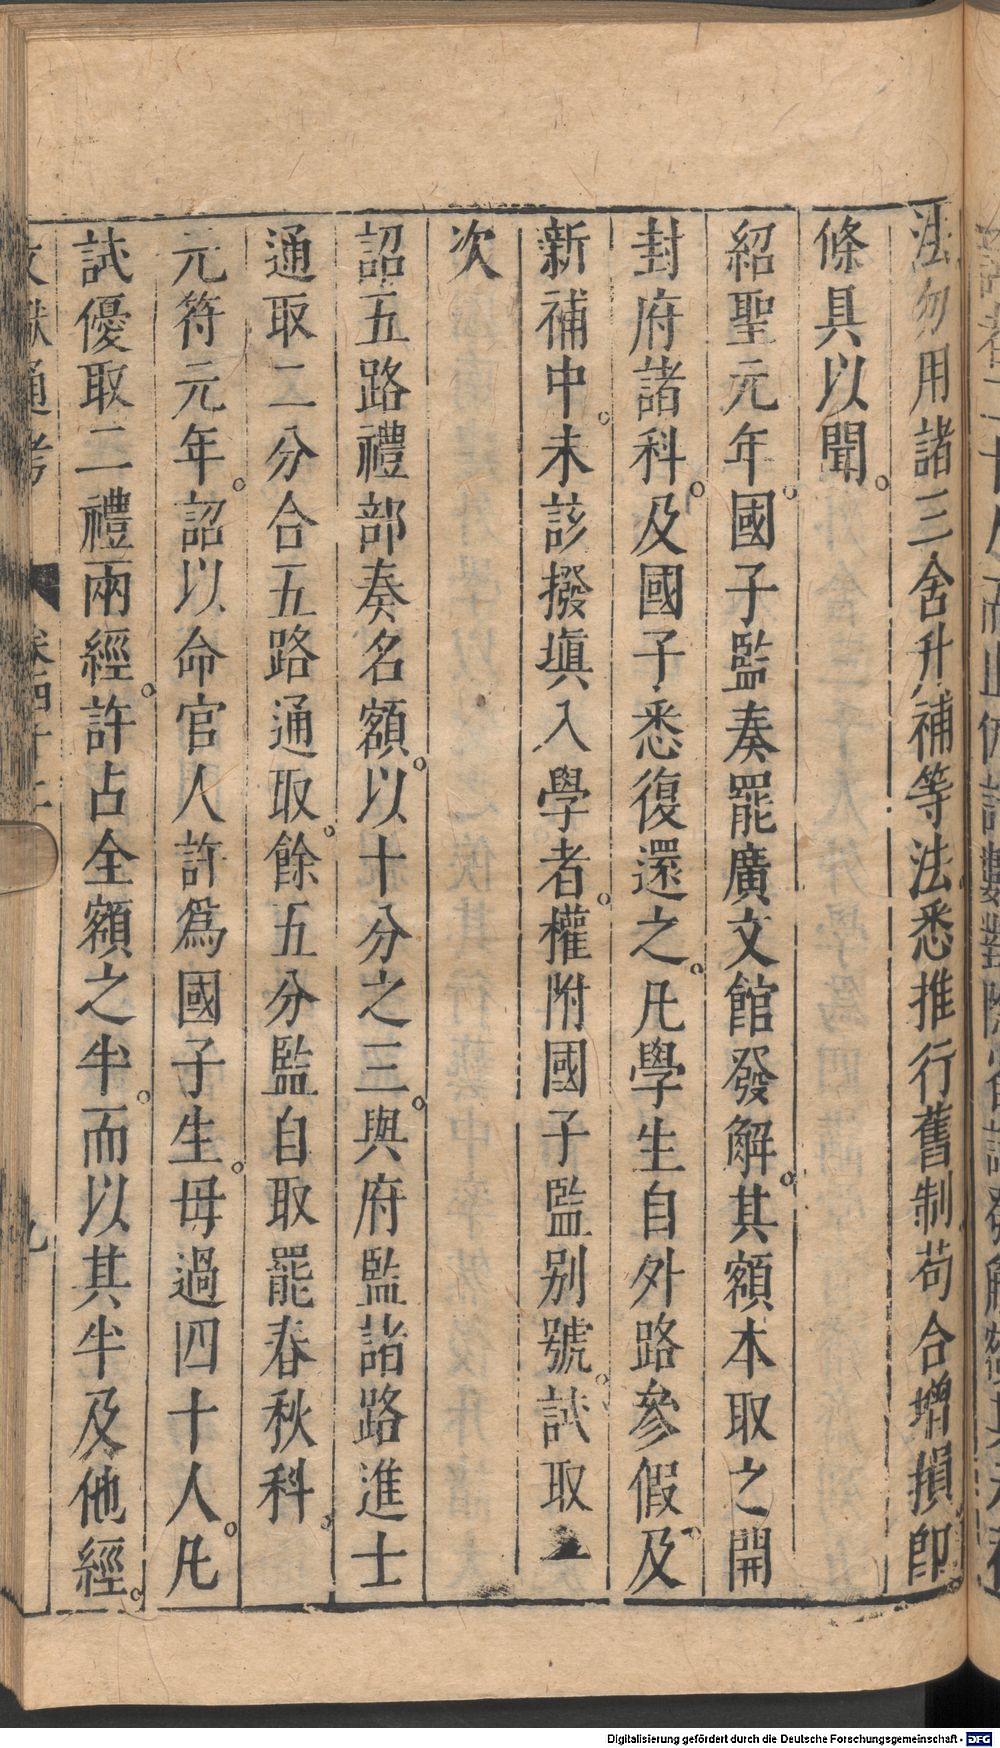 法勿用諸三舍升補等法悉推行舊制苟合增損即
條具以聞。
紹聖元年。國子監奏罷廣文館發解。其額本取之開
封府諸科。及國子悉復還之。凡學生自外路參假。及
新補中。未該撥塡入學者。權附國子監别號。試取
次
詔五路禮部奏名額。以十分之三。與府監諸路進士
通取二分合五路通取。餘五分監自取罷春秋科。
元符元年。詔以命官人許爲國子生。毋過四十人。凡
試優取二禮兩經。許占全額之半。而以其半及他經。
文獻通考 卷四十二 九
Digitalisierung gefördert durch die Deutsche Forschungsgemeinschaft - DFG